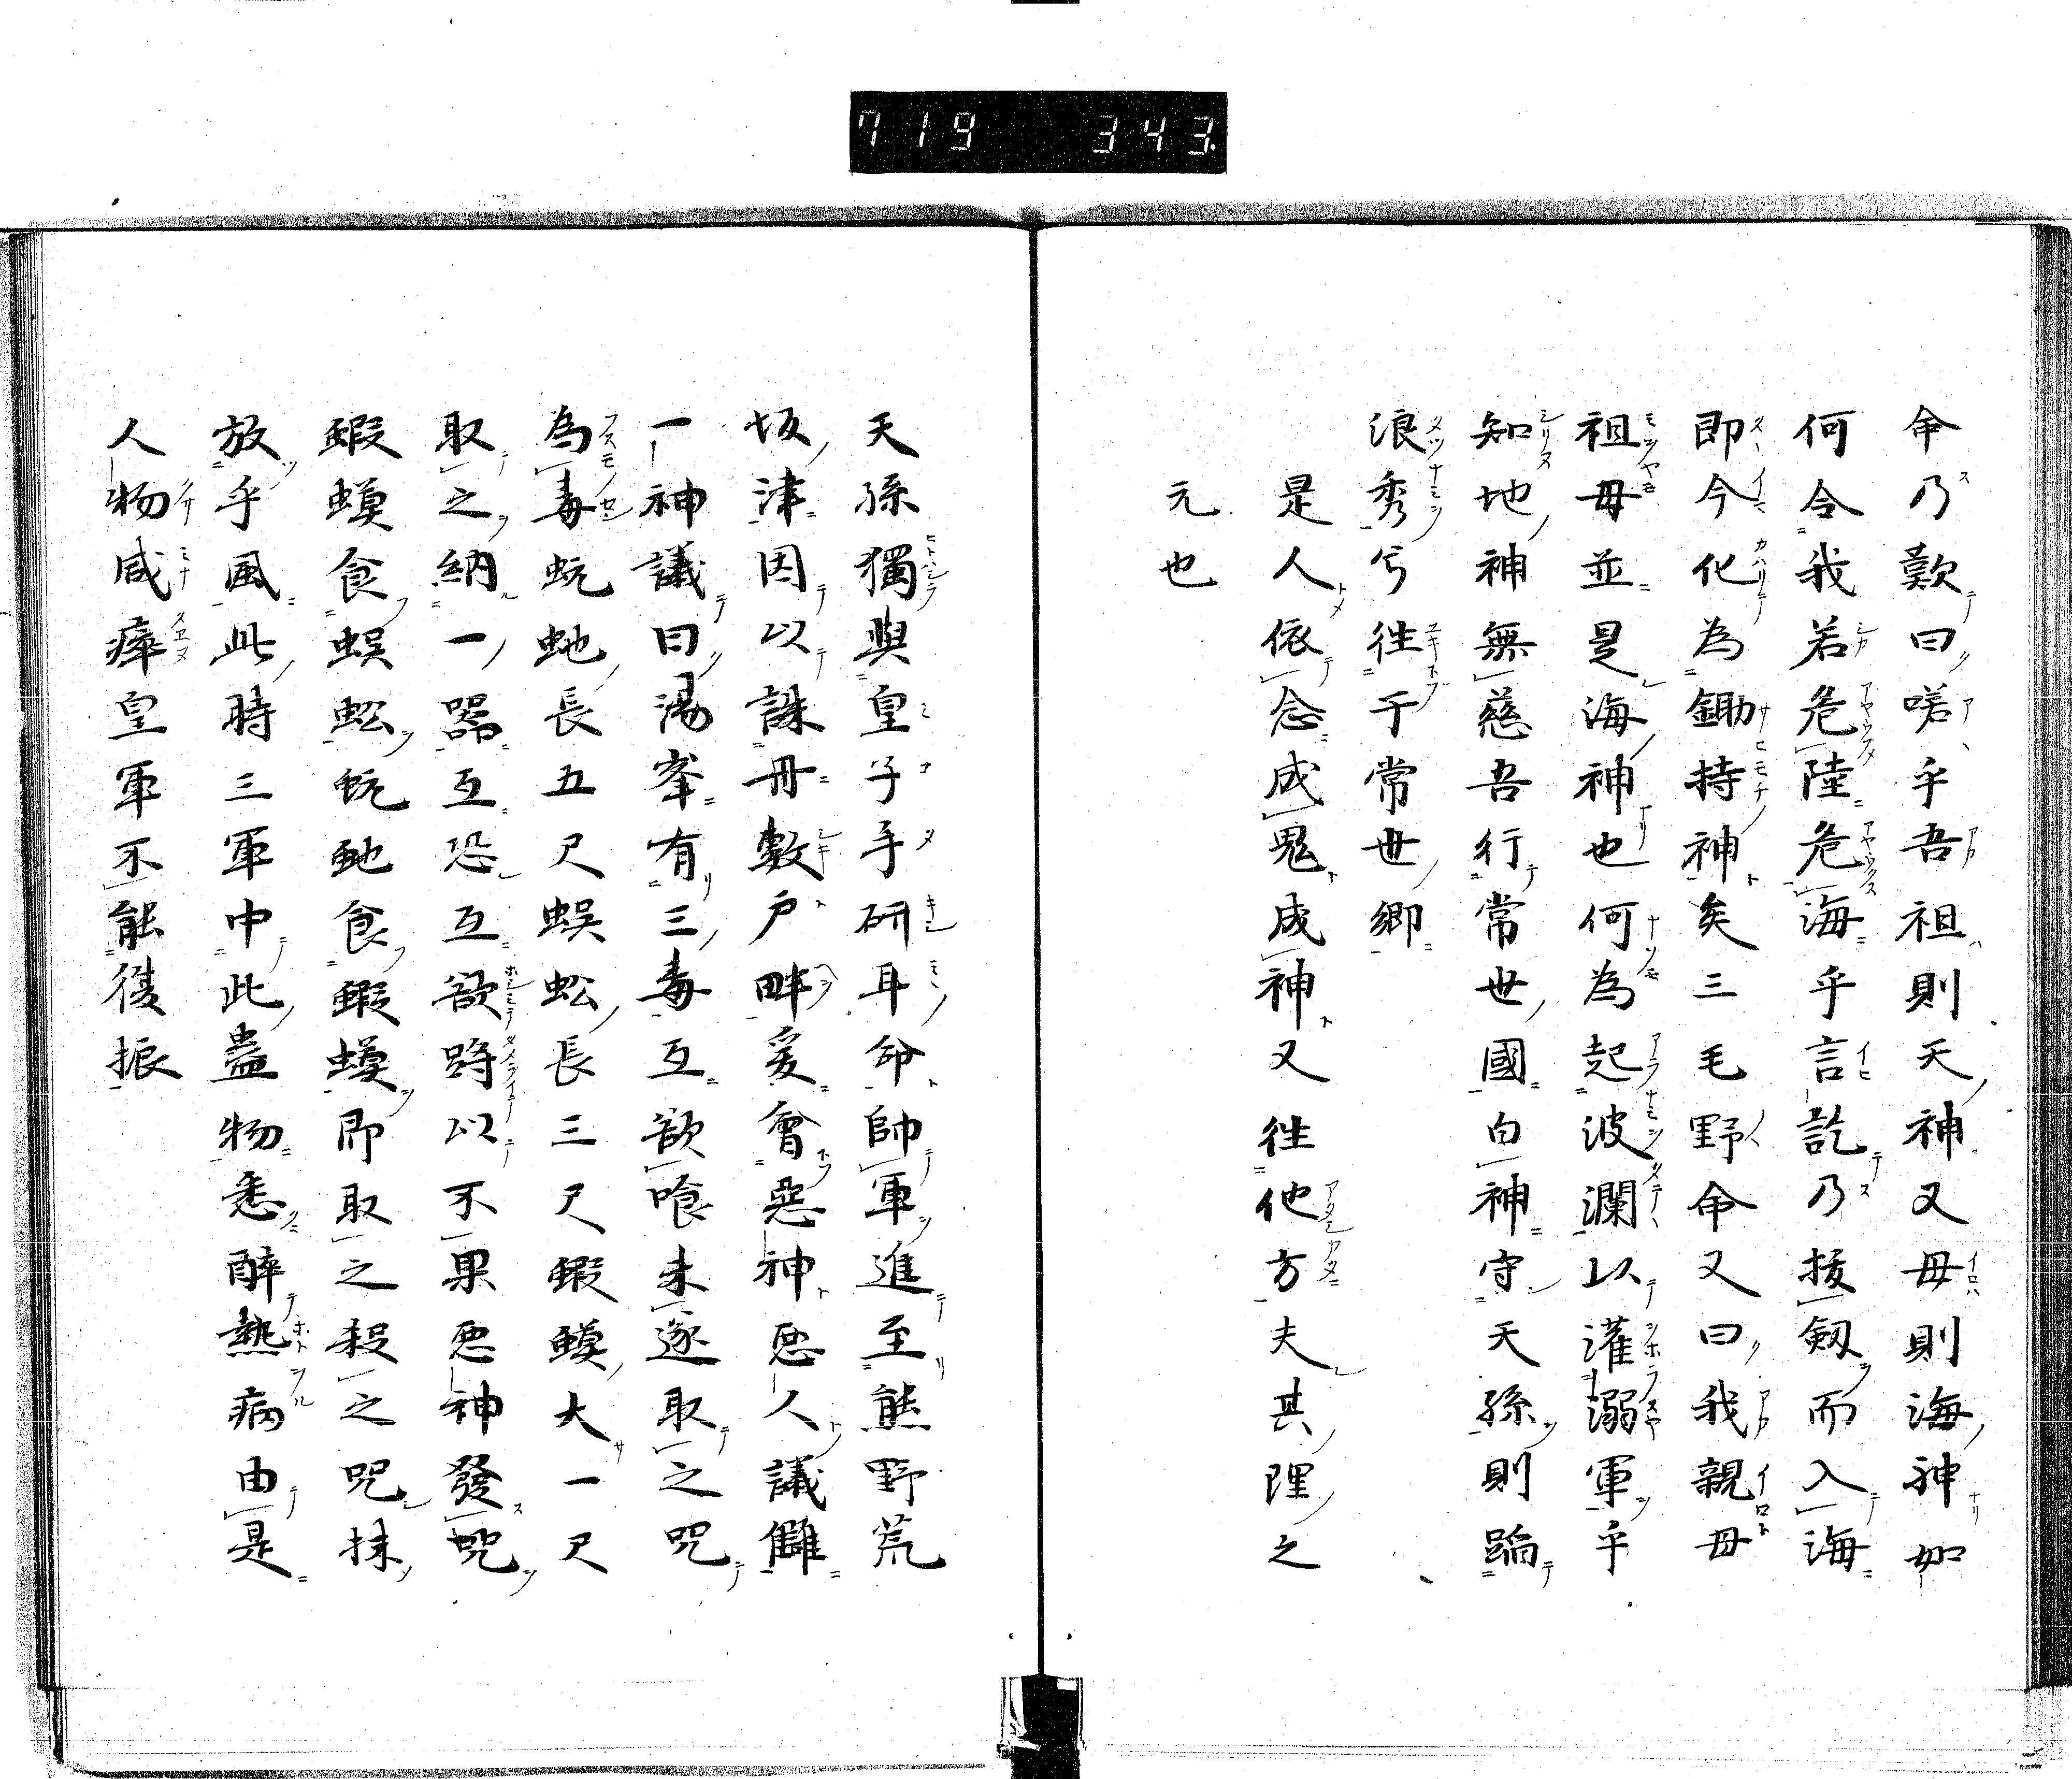 719 343
命乃歎曰嗟乎吾祖則天神又母則海神如
何令我若危陸危海乎言訖乃拔剱而入海
即今化為鋤持神矣三毛野命又曰我親母
祖母並是海神也何為起波瀾以灌溺軍乎
知地神無慈吾行常世國白神守天孫則蹈
浪秀兮往于常世郷
是人依念成鬼成神又往他方夫其理之
元也
天孫獨與皇子手研耳命帥軍進至熊野荒
坂津因以誅丹敷戸畔爰會惡神惡人議讎
一神議曰湯峯有三毒互欲喰未遂取之咒
為毒蚖虵長五尺蜈蚣長三尺蝦蟆大一尺
取之納一器互恐互欲時以不果惡神發咒
蝦蟆食蜈蚣蚖虵食蝦蟆即取之殺之咒抹
放乎風此時三軍中此蠱物悉醉熱病由是
人物咸瘁皇軍不能復振